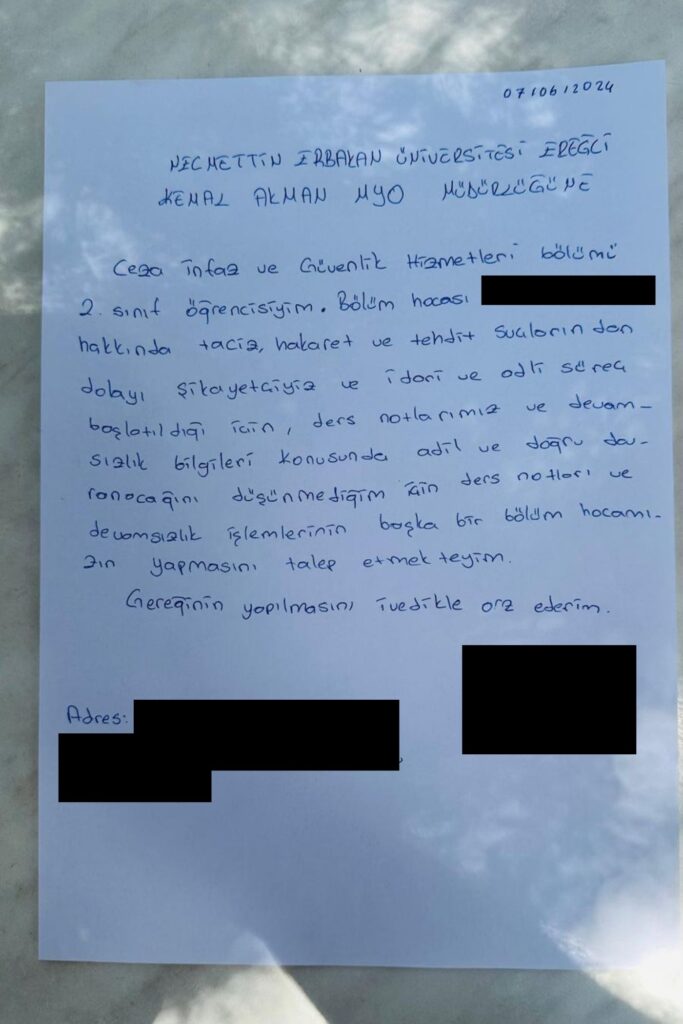 07/06/2024
NECMETTİN ERBAKAN ÜNİVERSİTESİ EREĞLİ
KEMAL AKMAN MYO MÜDÜRLÜĞÜNE
Ceza İnfaz ve Güvenlik Hizmetleri bölümü
2. sınıf öğrencisiyim. Bölüm hocası
hakkında taciz, hakaret ve tehdit suçlarından
dolayı şikayetçiyiz ve idari ve adli süreç
başlatıldığı için, ders notlarımız ve devam-
sızlık bilgileri konusunda adil ve doğru dav-
ranacağını düşünmediğim için ders notları ve
devamsızlık işlemlerinin başka bir bölüm hocamı-
zın yapmasını talep etmekteyim.
Gereğinin yapılmasını ivedikle arz ederim.
Adres: